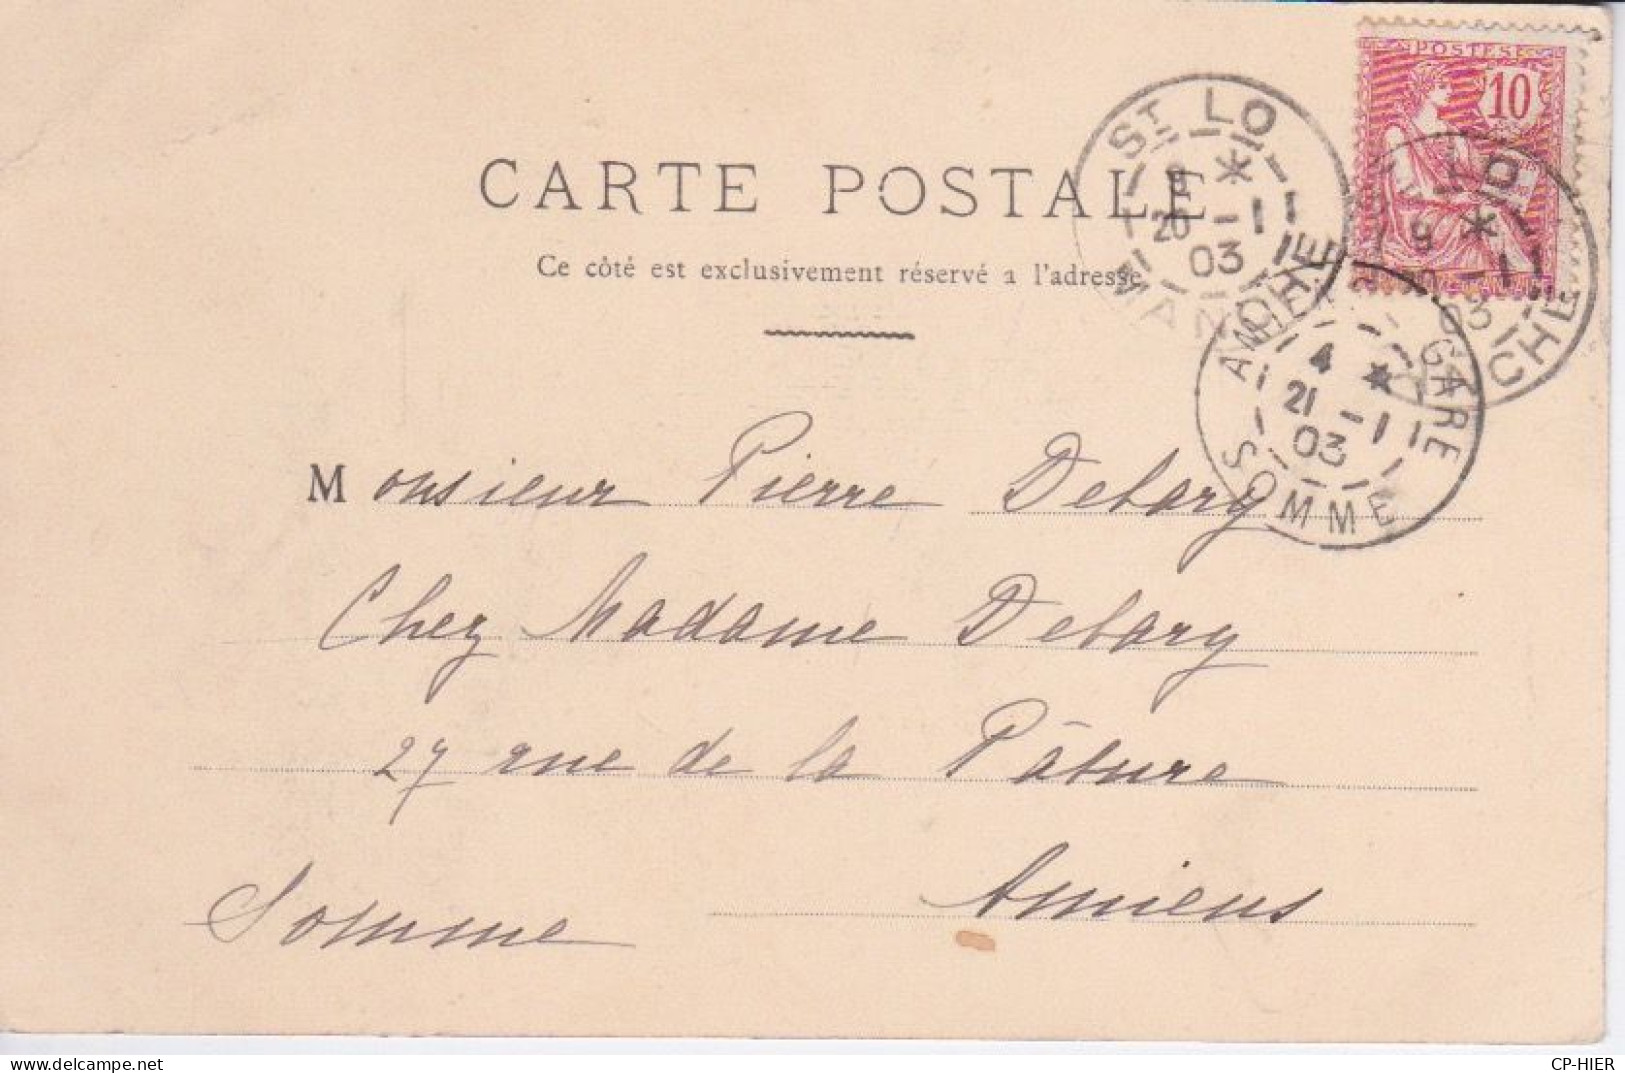 POSTES
10
ST LO
9 *
20 -1
03
MANCHE
LO
9 *
-1
03
CHE
CARTE POSTALE
Ce côté est exclusivement réservé a l'adresse
AMIENS GARE
4 *
21 -1
03
SOMME
Monsieur Pierre Debary
Chez Madame Debary
27 rue de la Pâture
Amiens
Somme
CP-HIER